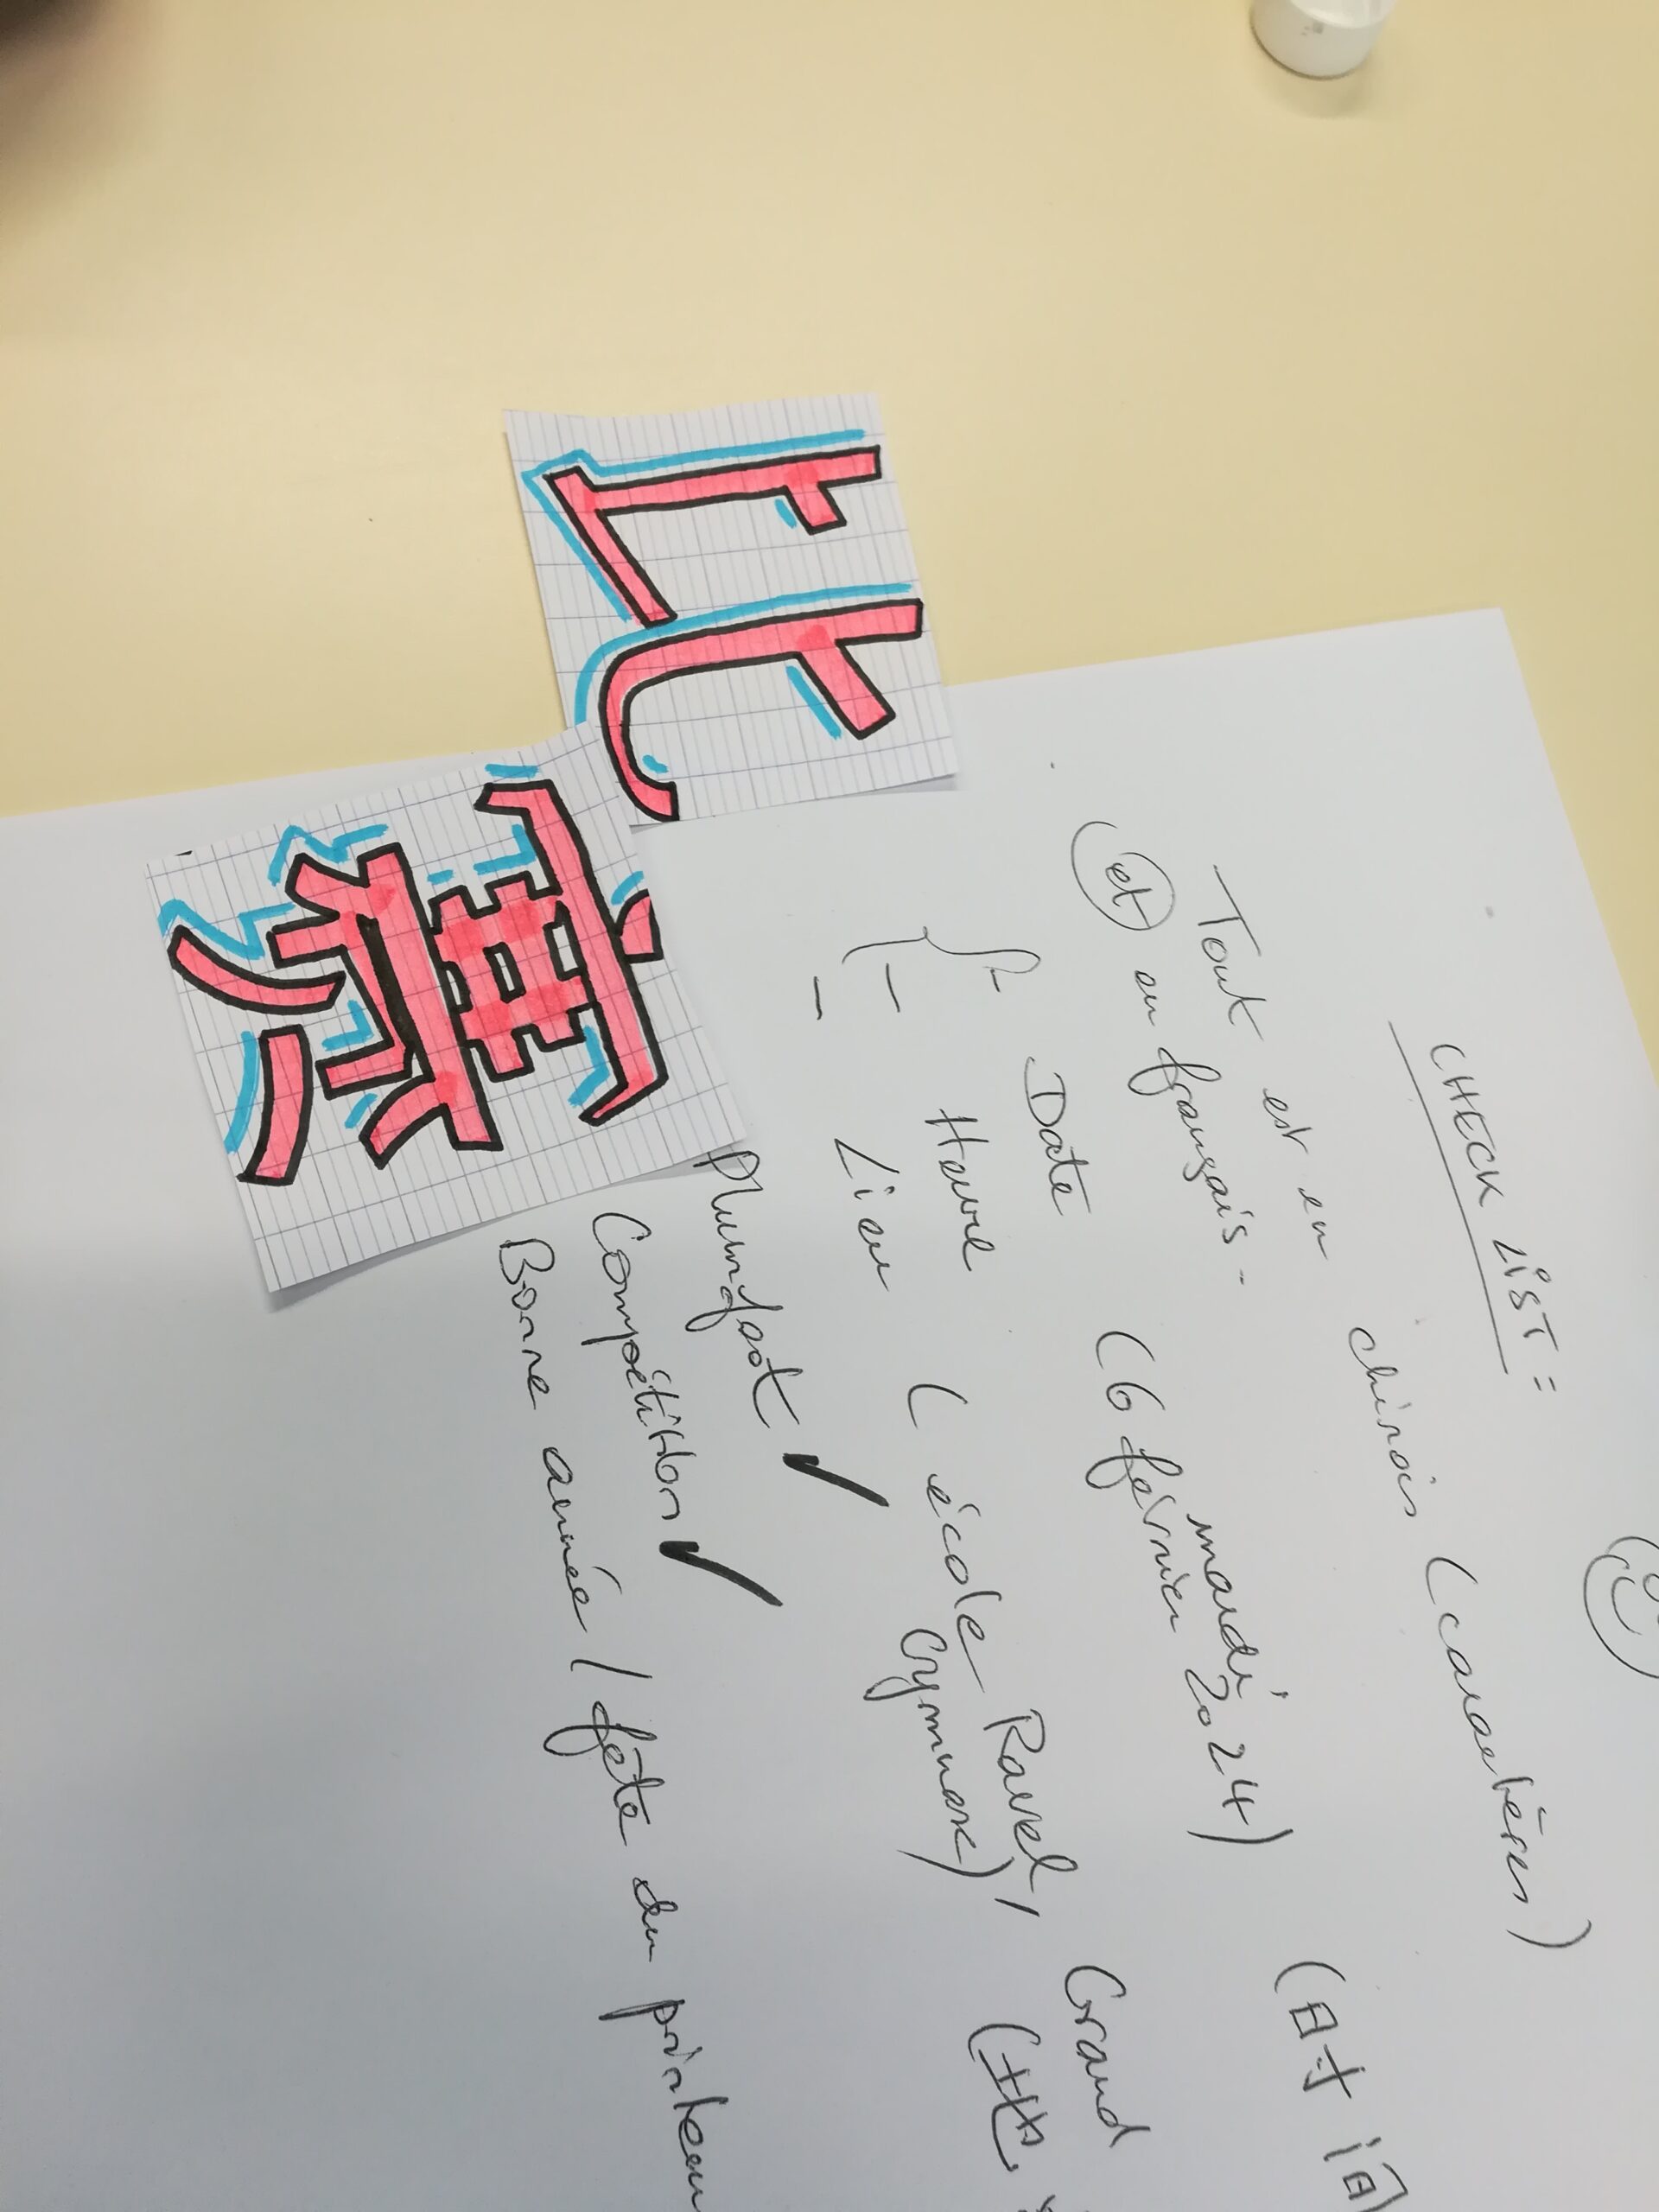 比
赛
CHECK LIST :
Tout est en chinois (caractères)
et en français.
- Date (6 février 2024) (时间)
mardi
- Heure
- Lieu (école Ravel, Grand
Gymnase)
Plumfoot ✓
Compétition ✓
Bonne année / fête du printemps